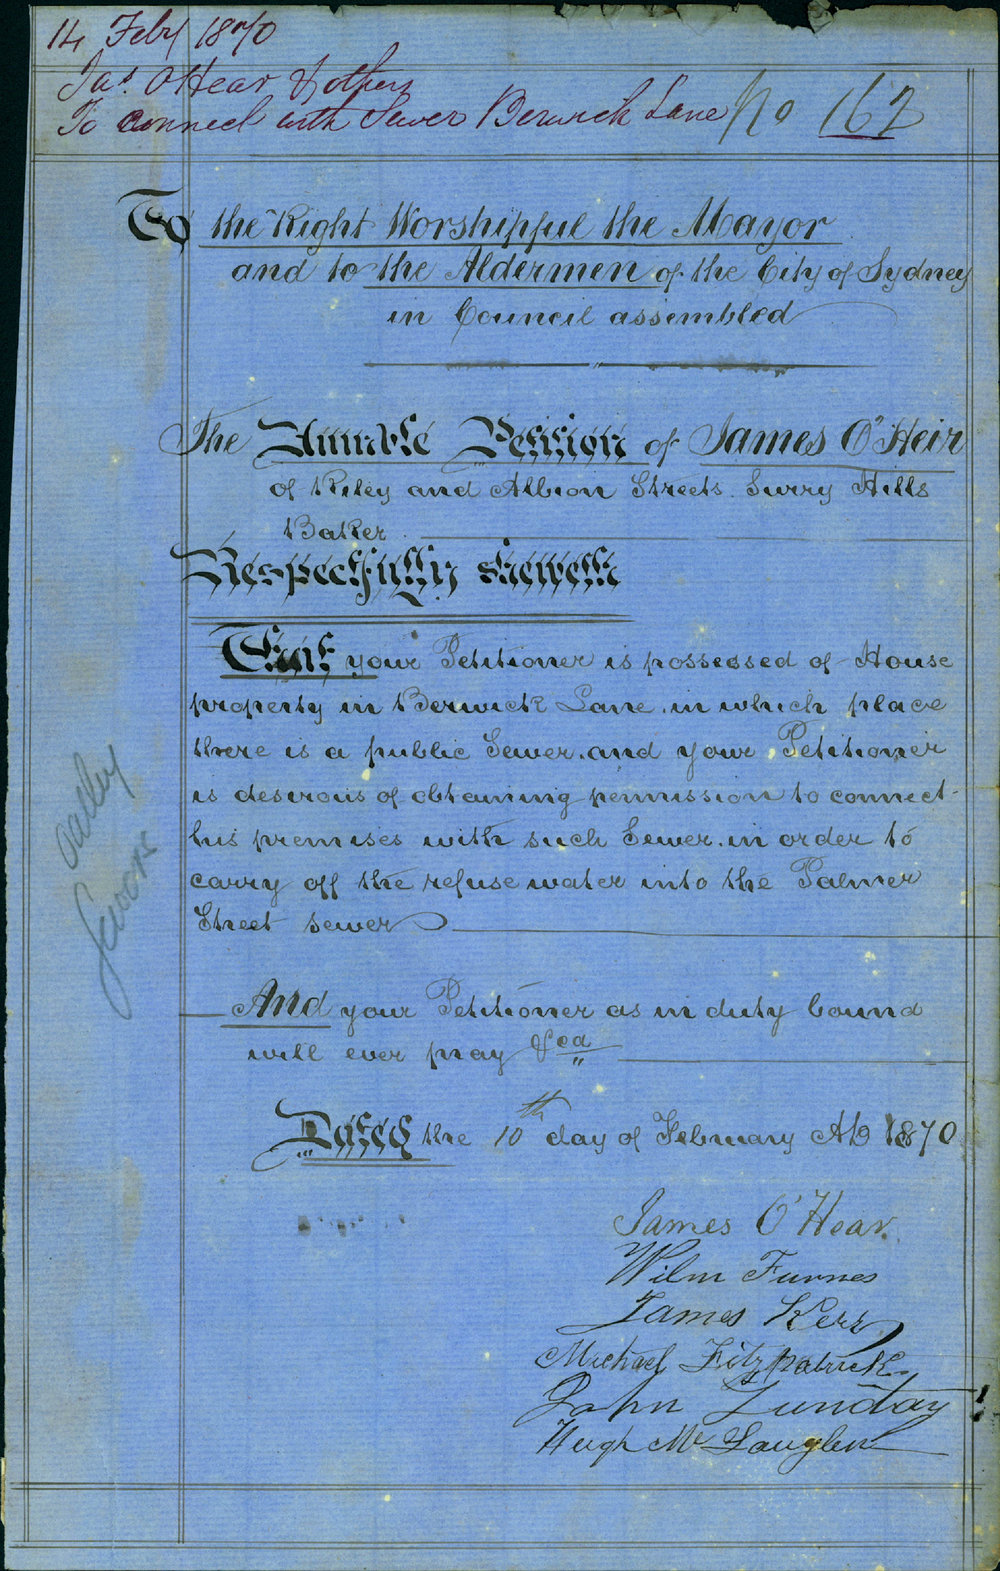 14 Feby 1870
Jas. O'Hear & others
To connect with Sewer Berwick Lane
No 162
To the Right Worshipful the Mayor
and to the Aldermen of the City of Sydney
in Council assembled
The Humble Petition of James O'Heir
of Riley and Albion Streets Surry Hills
Baker
Respectfully sheweth
That your Petitioner is possessed of House
property in Berwick Lane in which place
there is a public Sewer and your Petitioner
is desirous of obtaining permission to connect
his premises with such Sewer in order to
carry off the refuse water into the Palmer
Street sewer
And your Petitioner as in duty bound
will ever pray &ca
Dated the 10th day of February AD 1870
James O'Hear.
Wilm Furnes
James Kerr
Michael Fitzpatrick
John Lunday
Hugh Mc Lauglen